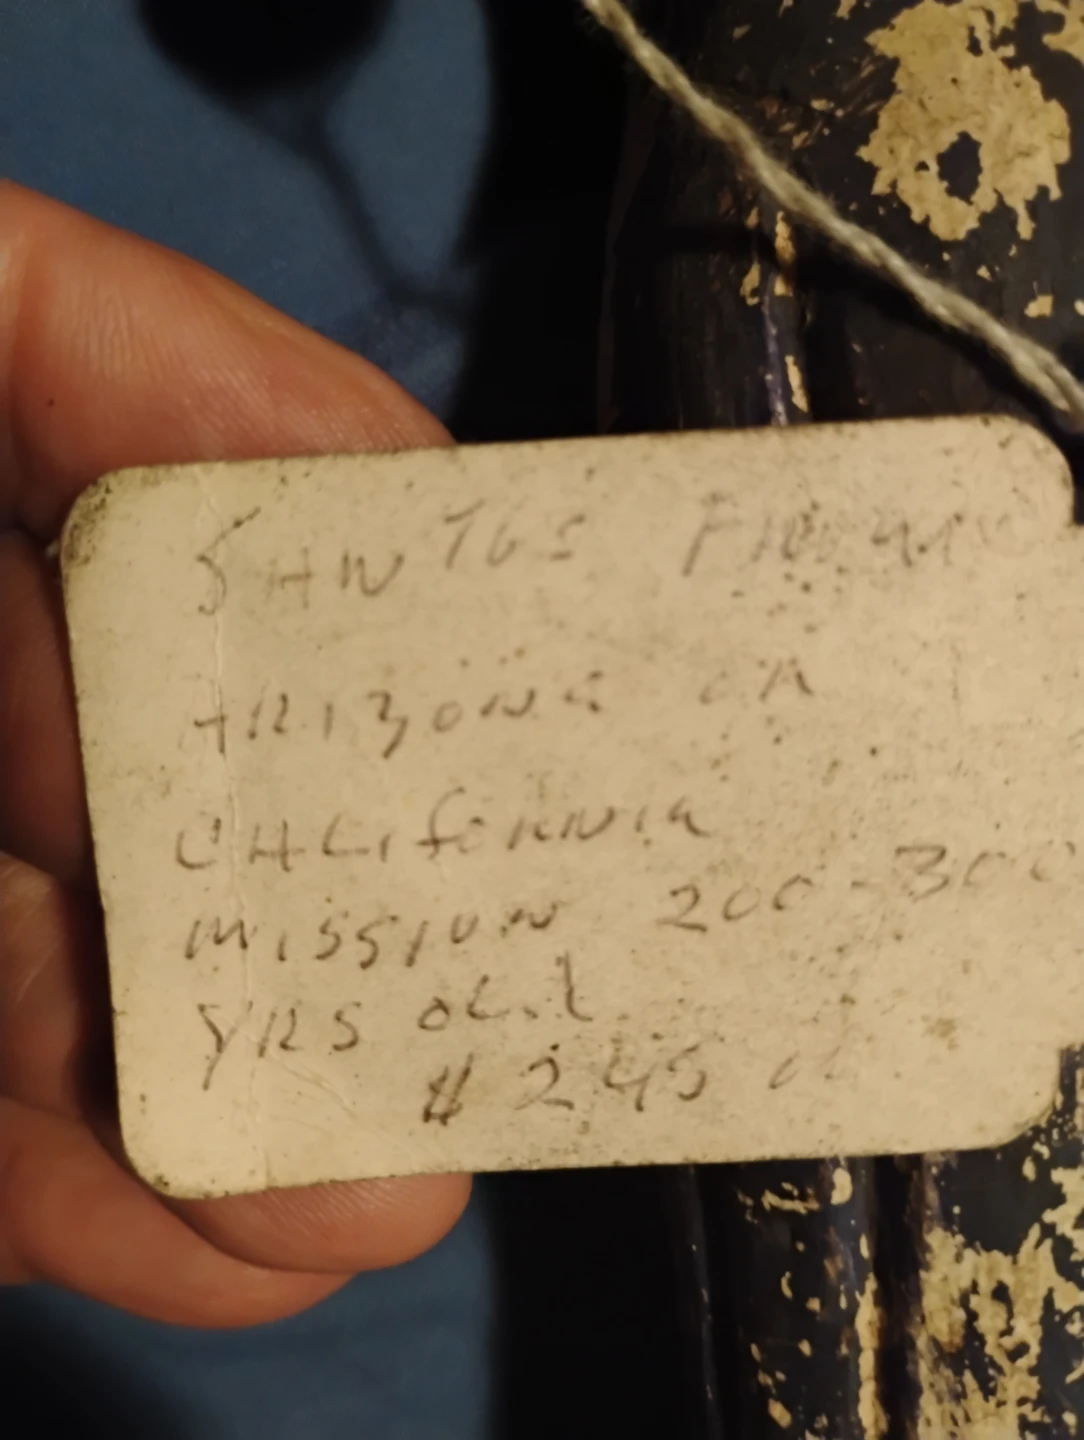 SANTOS FIGURE
ARIZONA OR
CALIFORNIA
MISSION 200-300
YRS OLd
$245